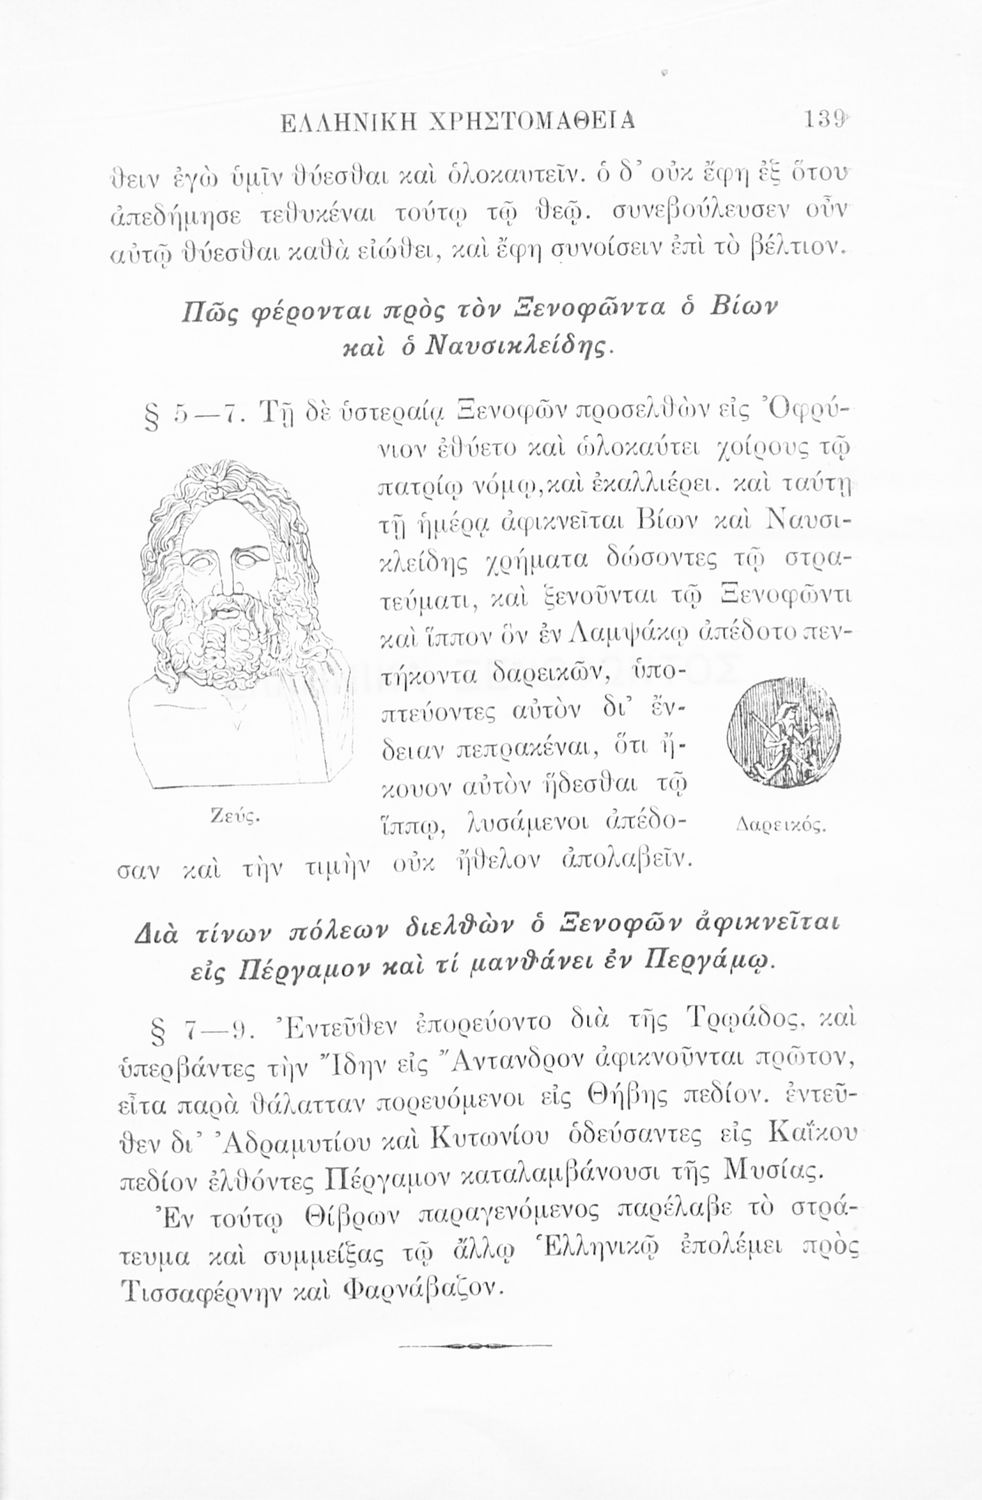 ΕΛΛΗΝΙΚΗ ΧΡΗΣΤΟΜΑΘΕΙΑ 139
θειν ἐγὼ ὑμῖν θύεσθαι καὶ ὁλοκαυτεῖν. ὁ δ’ οὐκ ἔφη ἐξ ὅτου
ἀπεδήμησε τεθυκέναι τούτῳ τῷ θεῷ. συνεβούλευσεν οὖν
αὐτῷ θύεσθαι καθὰ εἰώθει, καὶ ἔφη συνοίσειν ἐπὶ τὸ βέλτιον.
Πῶς φέρονται πρὸς τὸν Ξενοφῶντα ὁ Βίων
καὶ ὁ Ναυσικλείδης.
§ 5—7. Τῇ δὲ ὑστεραίᾳ Ξενοφῶν προσελθὼν εἰς Ὀφρύ-
νιον ἐθύετο καὶ ὡλοκαύτει χοίρους τῷ
πατρίῳ νόμῳ, καὶ ἐκαλλιέρει. καὶ ταύτῃ
τῇ ἡμέρᾳ ἀφικνεῖται Βίων καὶ Ναυσι-
κλείδης χρήματα δώσοντες τῷ στρα-
τεύματι, καὶ ξενοῦνται τῷ Ξενοφῶντι
καὶ ἵππον ὃν ἐν Λαμψάκῳ ἀπέδοτο πεν-
τήκοντα δαρεικῶν, ὑπο-
πτεύοντες αὐτὸν δι’ ἔν-
δειαν πεπρακέναι, ὅτι ἤ-
κουον αὐτὸν ἥδεσθαι τῷ
ἵππῳ, λυσάμενοι ἀπέδο-
Ζεύς.
Δαρεικός.
σαν καὶ τὴν τιμὴν οὐκ ἤθελον ἀπολαβεῖν.
Διὰ τίνων πόλεων διελθὼν ὁ Ξενοφῶν ἀφικνεῖται
εἰς Πέργαμον καὶ τί μανθάνει ἐν Περγάμῳ.
§ 7—9. Ἐντεῦθεν ἐπορεύοντο διὰ τῆς Τρῳάδος, καὶ
ὑπερβάντες τὴν Ἴδην εἰς Ἄντανδρον ἀφικνοῦνται πρῶτον,
εἶτα παρὰ θάλατταν πορευόμενοι εἰς Θήβης πεδίον. ἐντεῦ-
θεν δι’ Ἀδραμυτίου καὶ Κυτωνίου ὁδεύσαντες εἰς Καΐκου
πεδίον ἐλθόντες Πέργαμον καταλαμβάνουσι τῆς Μυσίας.
Ἐν τούτῳ Θίβρων παραγενόμενος παρέλαβε τὸ στρά-
τευμα καὶ συμμείξας τῷ ἄλλῳ Ἑλληνικῷ ἐπολέμει πρὸς
Τισσαφέρνην καὶ Φαρνάβαζον.